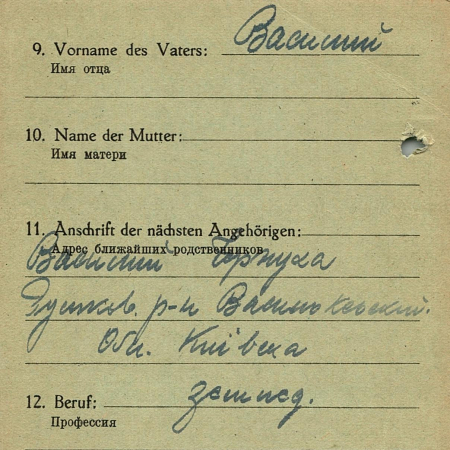 9. Vorname des Vaters: Василий
Имя отца
10. Name der Mutter:
Имя матери
11. Anschrift der nächsten Angehörigen:
Адрес ближайших родственников
Василий Чернуха
р-н Васильковский.
Обл. Київска
12. Beruf:
Профессия